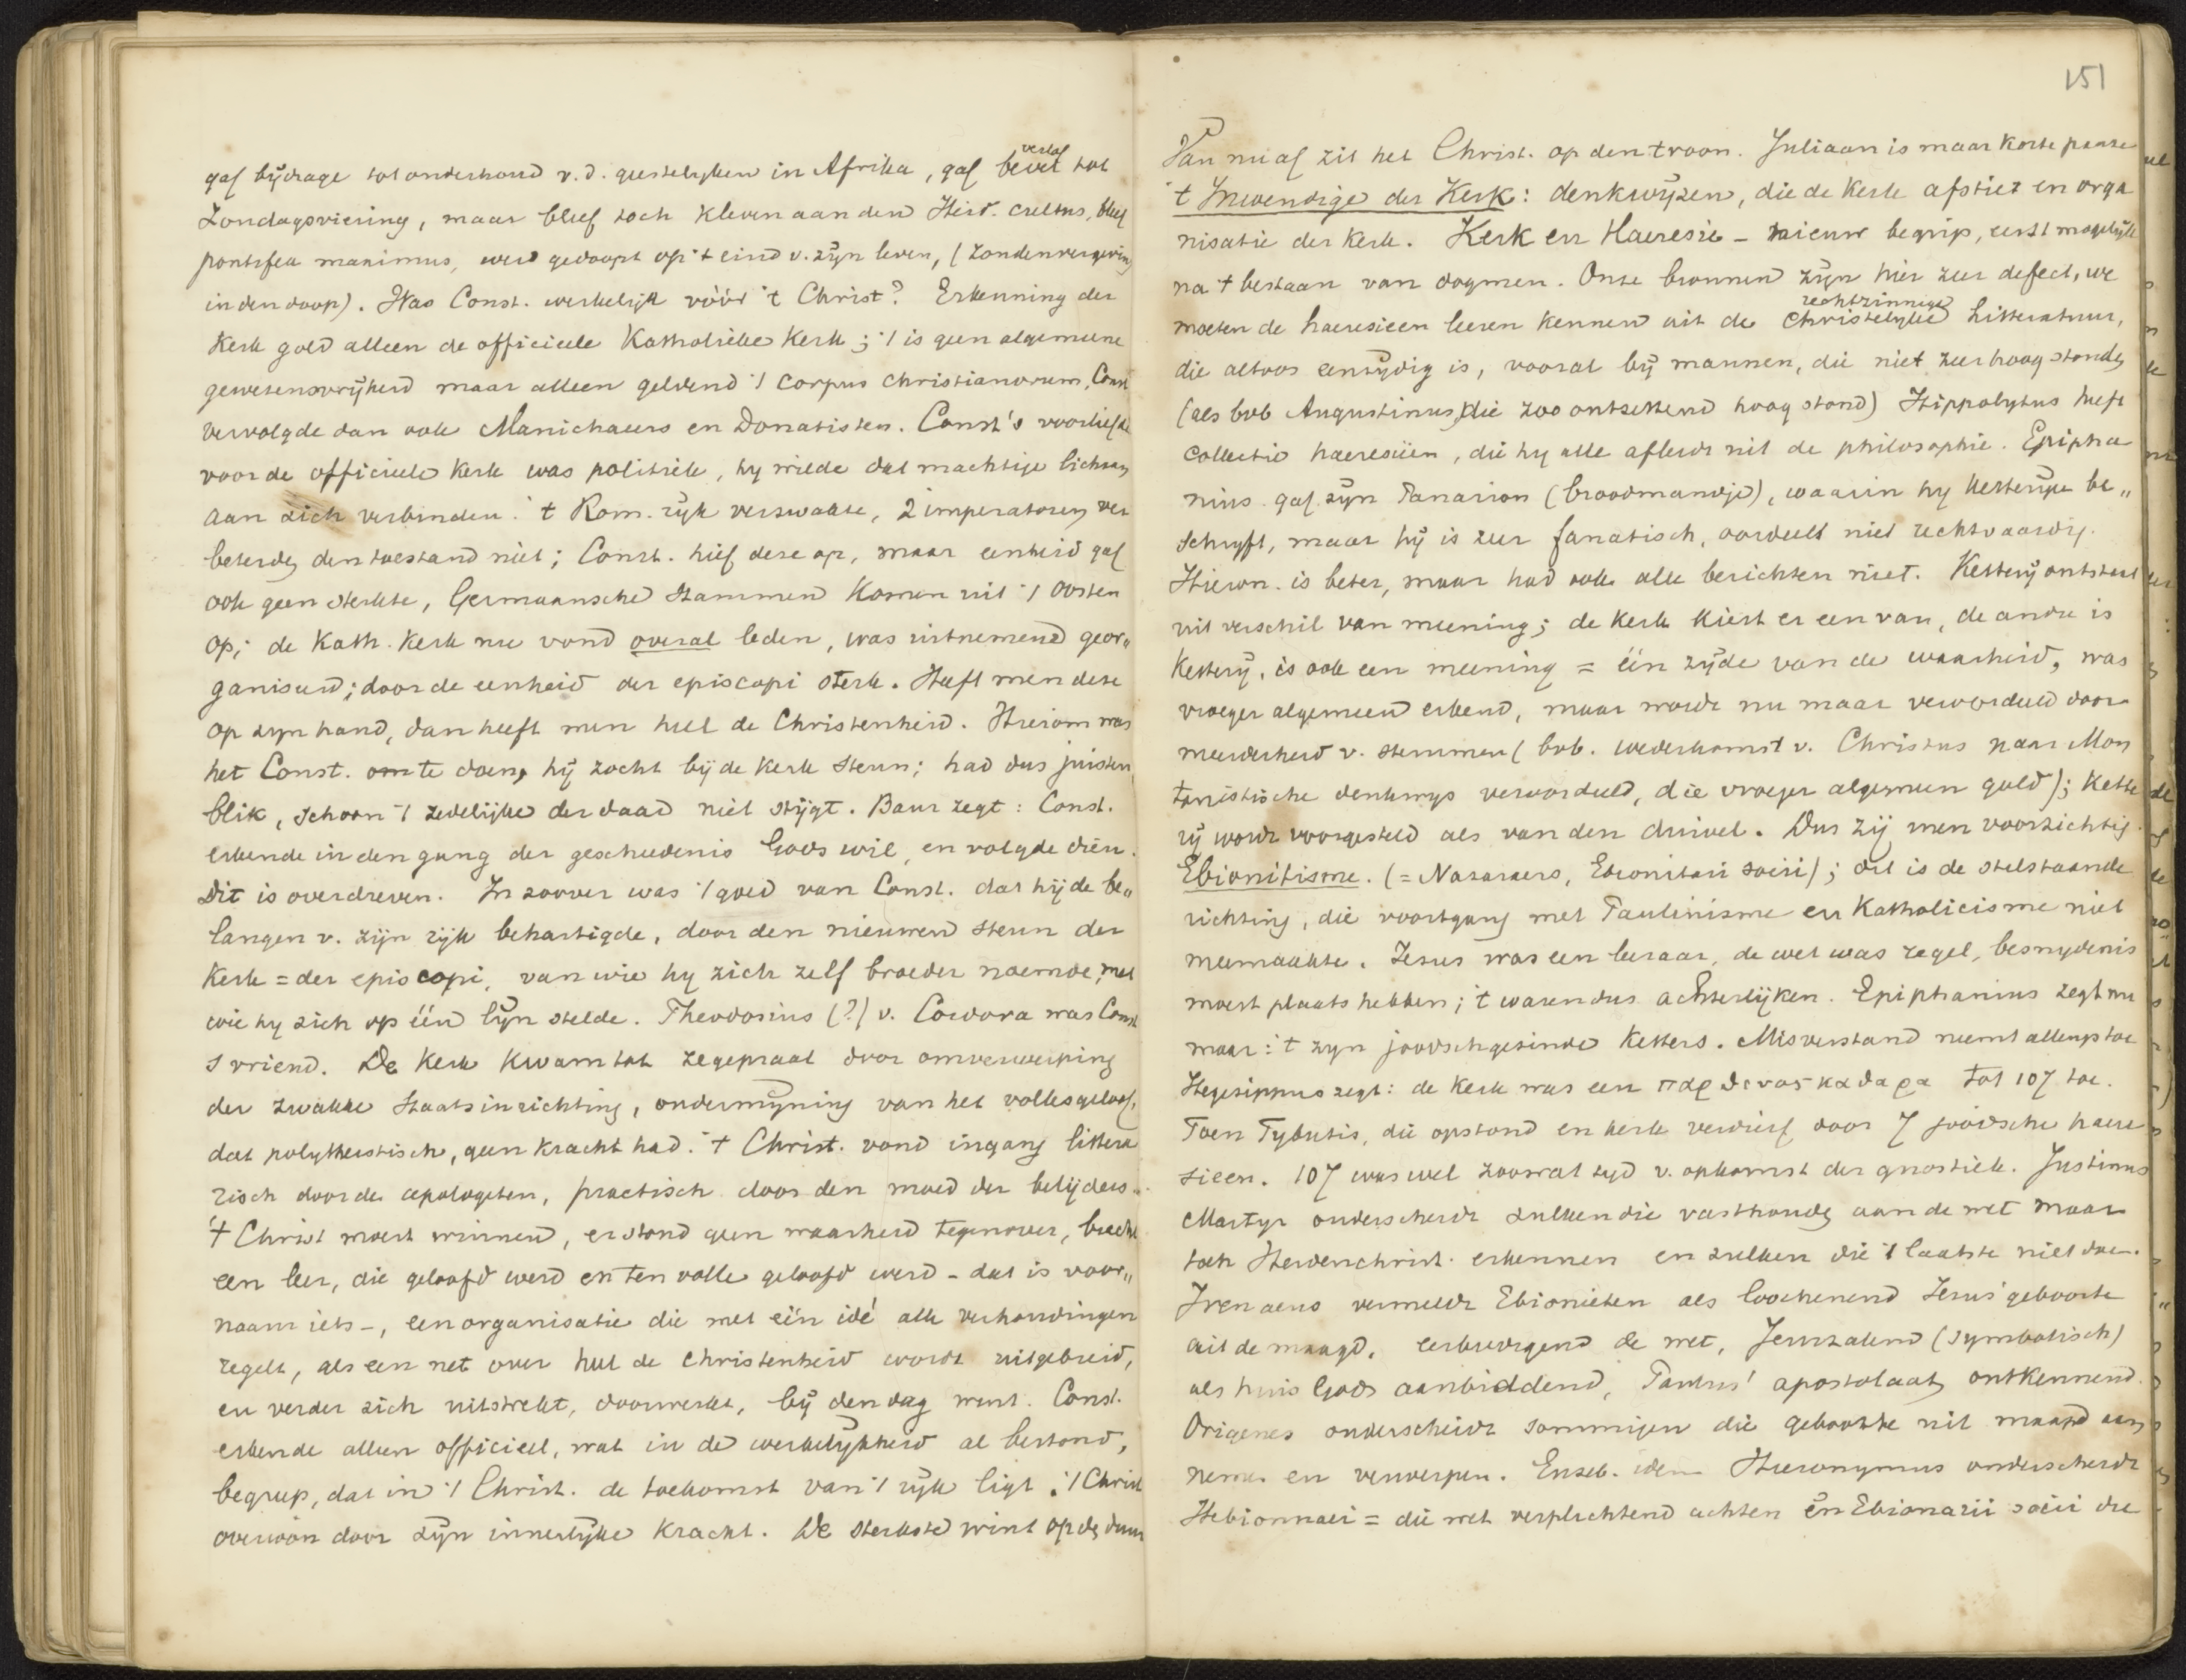 gaf bijdrage tot onderhoud v.d. geestelyken in Afrika, gaf bevel tot
verlof
Zondagsviering, maar bleef toch kleven aan den Heid. cultus, bleef
pontifex maximus, werd gedoopt op 't eind v. zijn leven, (zondenvergeving
in den doop). Was Const. werkelijk vóór 't Christ? Erkenning der
Kerk gold alleen de officieele Katholieke Kerk; 't is geen algemeene
gewetensvrijheid maar alleen geldend 't corpus christianorum, Const
vervolgde dan ook Manichaeers en Donatisten. Const's voorliefde
voor de officieele Kerk was politiek, hy wilde dat machtige lichaam
aan zich verbinden. 't Rom. rijk verzwakte, 2 imperatoren ver
beterden den toestand niet; Const. hief deze op, maar eenheid gaf
ook geen sterkte, Germaansche stammen komen uit 't Oosten
op; de Kath. Kerk nu vond overal leden, was uitnemend geor„
ganiseerd; door de eenheid der episcopi sterk. Heeft men deze
op zyn hand, dan heeft men heel de Christenheid. Hierom was
het Const. om te doen, hij zocht bij de Kerk steun; had dus juisten
blik, schoon 't zedelijke der daad niet stijgt. Baur zegt: Const.
erkende in den gang der geschiedenis Gods wil, en volgde dien.
Dit is overdreven. In zoover was 't goed van Const. dat hij de be„
langen v. zijn rijk behartigde, door den nieuwen steun der
Kerk = der episcopi, van wie hy zich zelf broeder noemde, met
wie hy zich op één lijn stelde. Theodosius (?) v. Cordova was Const
s vriend. De Kerk kwam tot zegepraal door omverwerping
der zwakke Staatsinrichting, ondermijning van het volksgeloof,
dat polytheistisch, geen kracht had. 't Christ. vond ingang littera
risch door de apologeten, practisch door den moed der belijders.
't Christ moest winnen, er stond geen waarheid tegenover, bracht
een leer, die geloofd werd en ten volle geloofd werd – dat is voor„
naam iets –, een organisatie die met één idé alle verhoudingen
regelt, als een net over heel de Christenheid wordt uitgebreid,
en verder zich uitstrekt, doorwerkt, bij den dag wint. Const.
erkende alleen officieel, wat in de werkelijkheid al bestond,
begreep, dat in 't Christ. de toekomst van 't rijk ligt. 't Christ
overwon door zijn innerlijke kracht. De sterkste wint op den duur
151
Van nu af zit het Christ. op den troon. Juliaan is maar korte pauze
't Inwendige der Kerk: denkwijzen, die de Kerk afstiet en orga
nisatie der Kerk. Kerk en Haeresie – nieuw begrip, eerst mogelijk
na 't bestaan van dogmen. Onze bronnen zijn hier zeer defect, we
rechtzinnige
moeten de haeresieen leeren kennen uit de Christelyke Litteratuur,
die altoos eenzijdig is, vooral bij mannen, die niet zeer hoog stonden
(als bvb Augustinus, die zoo ontzettend hoog stond) Hippolytus heeft
collectie haeresiëen, die hy alle afleidt uit de philosophie. Epipha
nius gaf zijn Panarion (broodmandje), waarin hy ketterije be„
schryft, maar hij is zeer fanatisch, oordeelt niet rechtvaardig.
Hieron. is beter, maar had ook alle berichten niet. Ketterij ontstaat
uit verschil van meening; de Kerk kiest er een van, de andre is
Ketterij, is ook een meening = één zijde van de waarheid, was
vroeger algemeen erkend, maar wordt nu maar veroordeeld door
meerderheid v. stemmen (bvb. wederkomst v. Christus naar Mon
tanistische denkwijs veroordeeld, die vroeger algemeen gold); kette
rij wordt voorgesteld als van den duivel. Dus zij men voorzichtig.
Ebionitisme. (= Nazaraers, Ebionitari socii); dit is de stilstaande
richting, die voortgang met Paulinisme en Katholicisme niet
meemaakte. Jesus was een leeraar, de wet was regel, besnydenis
moest plaats hebben; 't waren dus achterlijken. Epiphanius zegt nu
maar: 't zyn joodschgezinde ketters. Misverstand neemt allengs toe
Hegesippus zegt: de Kerk was een παρθενος καθαρα tot 107 toe.
Toen Tybutis, die opstond en kerk verdierf door 7 joodsche haere
sieen. 107 was wel zoowat tyd v. opkomst der gnostiek. Justinus
Martyr onderscheidt zulken die vasthouden aan de wet maar
toch Heidenchrist. erkennen en zulken die 't laatste niet doen.
Irenaeus vermeldt Ebionieten als loochenend Jesus' geboorte
uit de maagd, eerbiedigend de wet, Jeruzalem (symbolisch)
als huis Gods aanbiddend, Paulus' apostolaat ontkennend.
Origenes onderscheidt sommigen die geboorte uit maagd aan
nemen en verwerpen. Euseb. idem Hieronymus onderscheidt
Hebionaei = die wet verplichtend achten en Ebionarii socii die